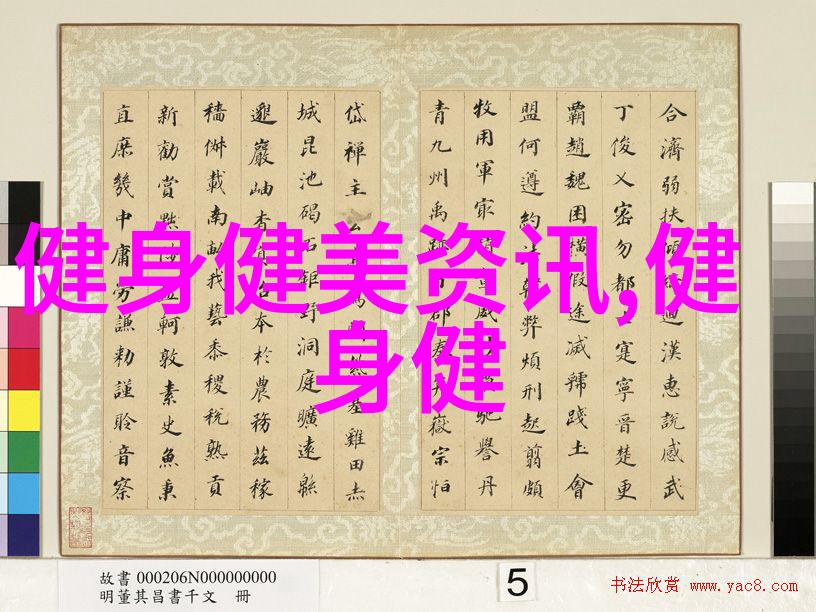 合濟弱扶傾迴漢惠說感武
丁俊乂密勿都士寔寧晉楚更
霸趙魏困橫假途滅虢踐土會
盟何遵約法韓弊煩刑起翦頗
牧用軍宣威馳譽丹
青九州禹跡百郡秦嶽宗恒
岱禪主雞田赤
城昆池碣石鉅野洞庭曠遠緜
邈巖岫杳冥治本於農務茲稼
穡俶載南畝我藝黍稷稅熟貢
新勸賞黜陟孟軻敦素史魚秉
直庶幾中庸勞謙勑謹聆音察
健身健美资讯,健
身健
故書 000206N000000000
明董其昌書千文 冊
5
书法欣赏 www.yac8.com